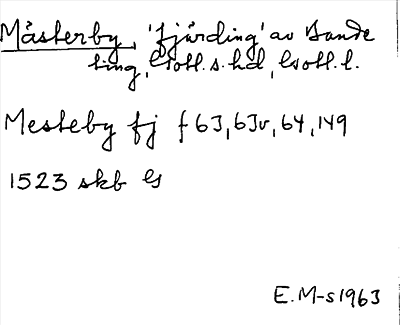 Mästerby, 'fjärding' av Bande
ting, Gotl. s. hd, Gotl. l.
Mesteby fj f 63, 63v, 64, 149
1523 skb G
E. M-s 1963